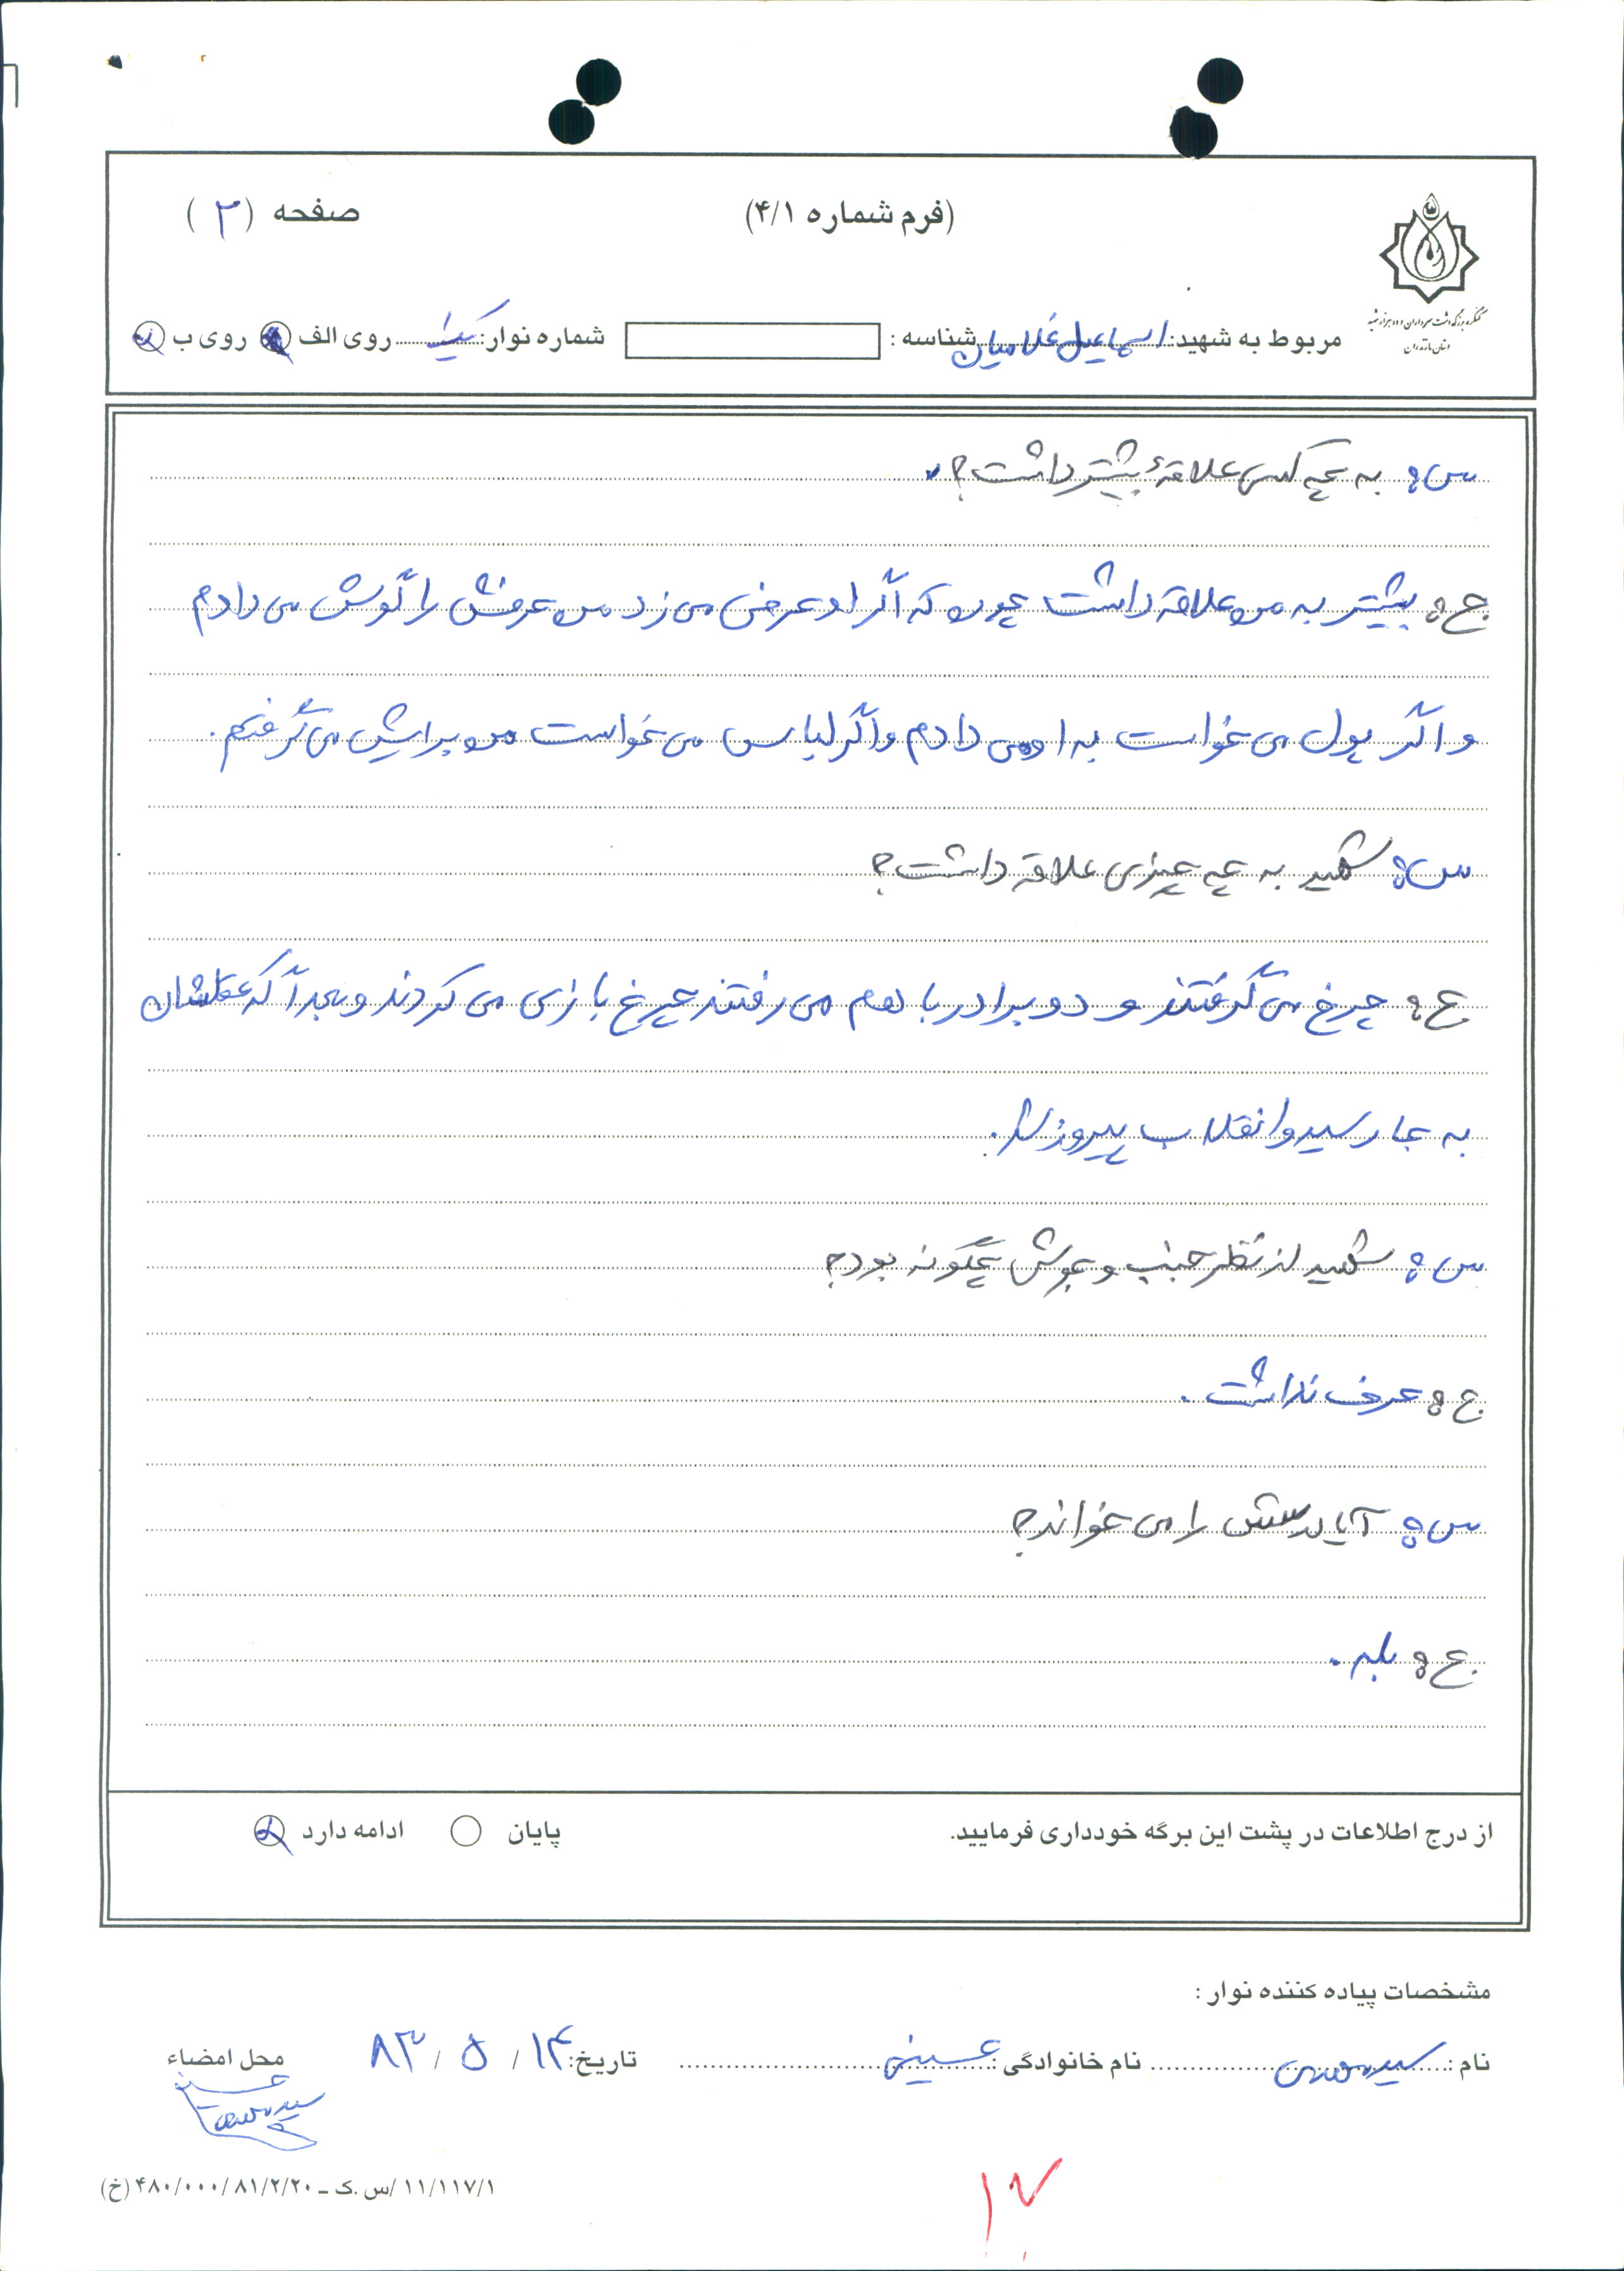 (فرم شماره ۴/۱)
صفحه (۲)
کنگره بزرگداشت سرداران و ده هزار شهید
استان مازندران
مربوط به شهید: اسماعیل غلامیان شناسه : شماره نوار: یک روی الف روی ب
س: به چه کسی علاقهٔ بیشتر داشت؟
ج: بیشتر به من علاقه داشت چون که اگر او حرفی می زد من حرفش را گوش می دادم
و اگر پول می خواست به او می دادم و اگر لباس می خواست من برایش می گرفتم.
س: شهید به چه چیزی علاقه داشت؟
ج: چرخ می گرفتند و دو برادر با هم می رفتند چرخ بازی می کردند و بعداً که عقلشان
به جا رسید و انقلاب پیروز شد.
س: شهید از نظر جنب و جوش چگونه بود؟
ج: حرف نداشت.
س: آیا درسش را می خواند؟
ج: بله.
از درج اطلاعات در پشت این برگه خودداری فرمایید. پایان ادامه دارد
مشخصات پیاده کننده نوار :
نام : سید مهدی نام خانوادگی : حسینی تاریخ: ۱۴ / ۵ / ۸۳ محل امضاء
۱۱/۱۱۷/۱ /س.ک – ۴۸۰/۰۰۰/۸۱/۲/۲۰ (خ)
۱۷